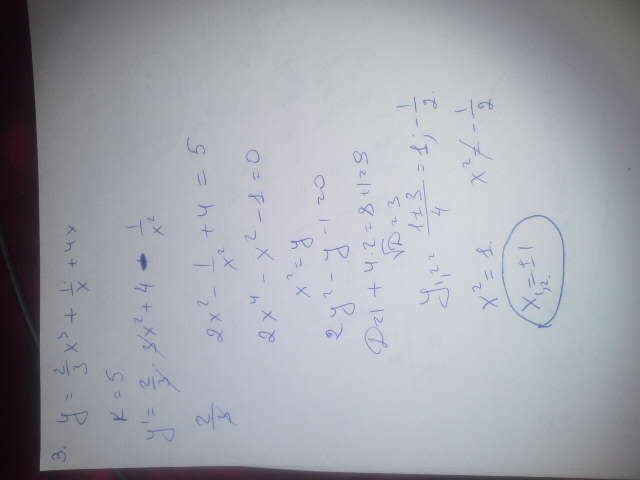 3. y = 2/3 x³ + 1/x + 4x
k = 5
y' = 2/3 · 3x² + 4 - 1/x²
2/3
2x² - 1/x² + 4 = 5
2x⁴ - x² - 1 = 0
x² = y
2y² - y - 1 = 0
D = 1 + 4·2 = 8 + 1 = 9
√D = 3
y₁,₂ = (1±3)/4 = 1; -1/2.
x² = 1. x² ≠ -1/2
x₁,₂. = ±1